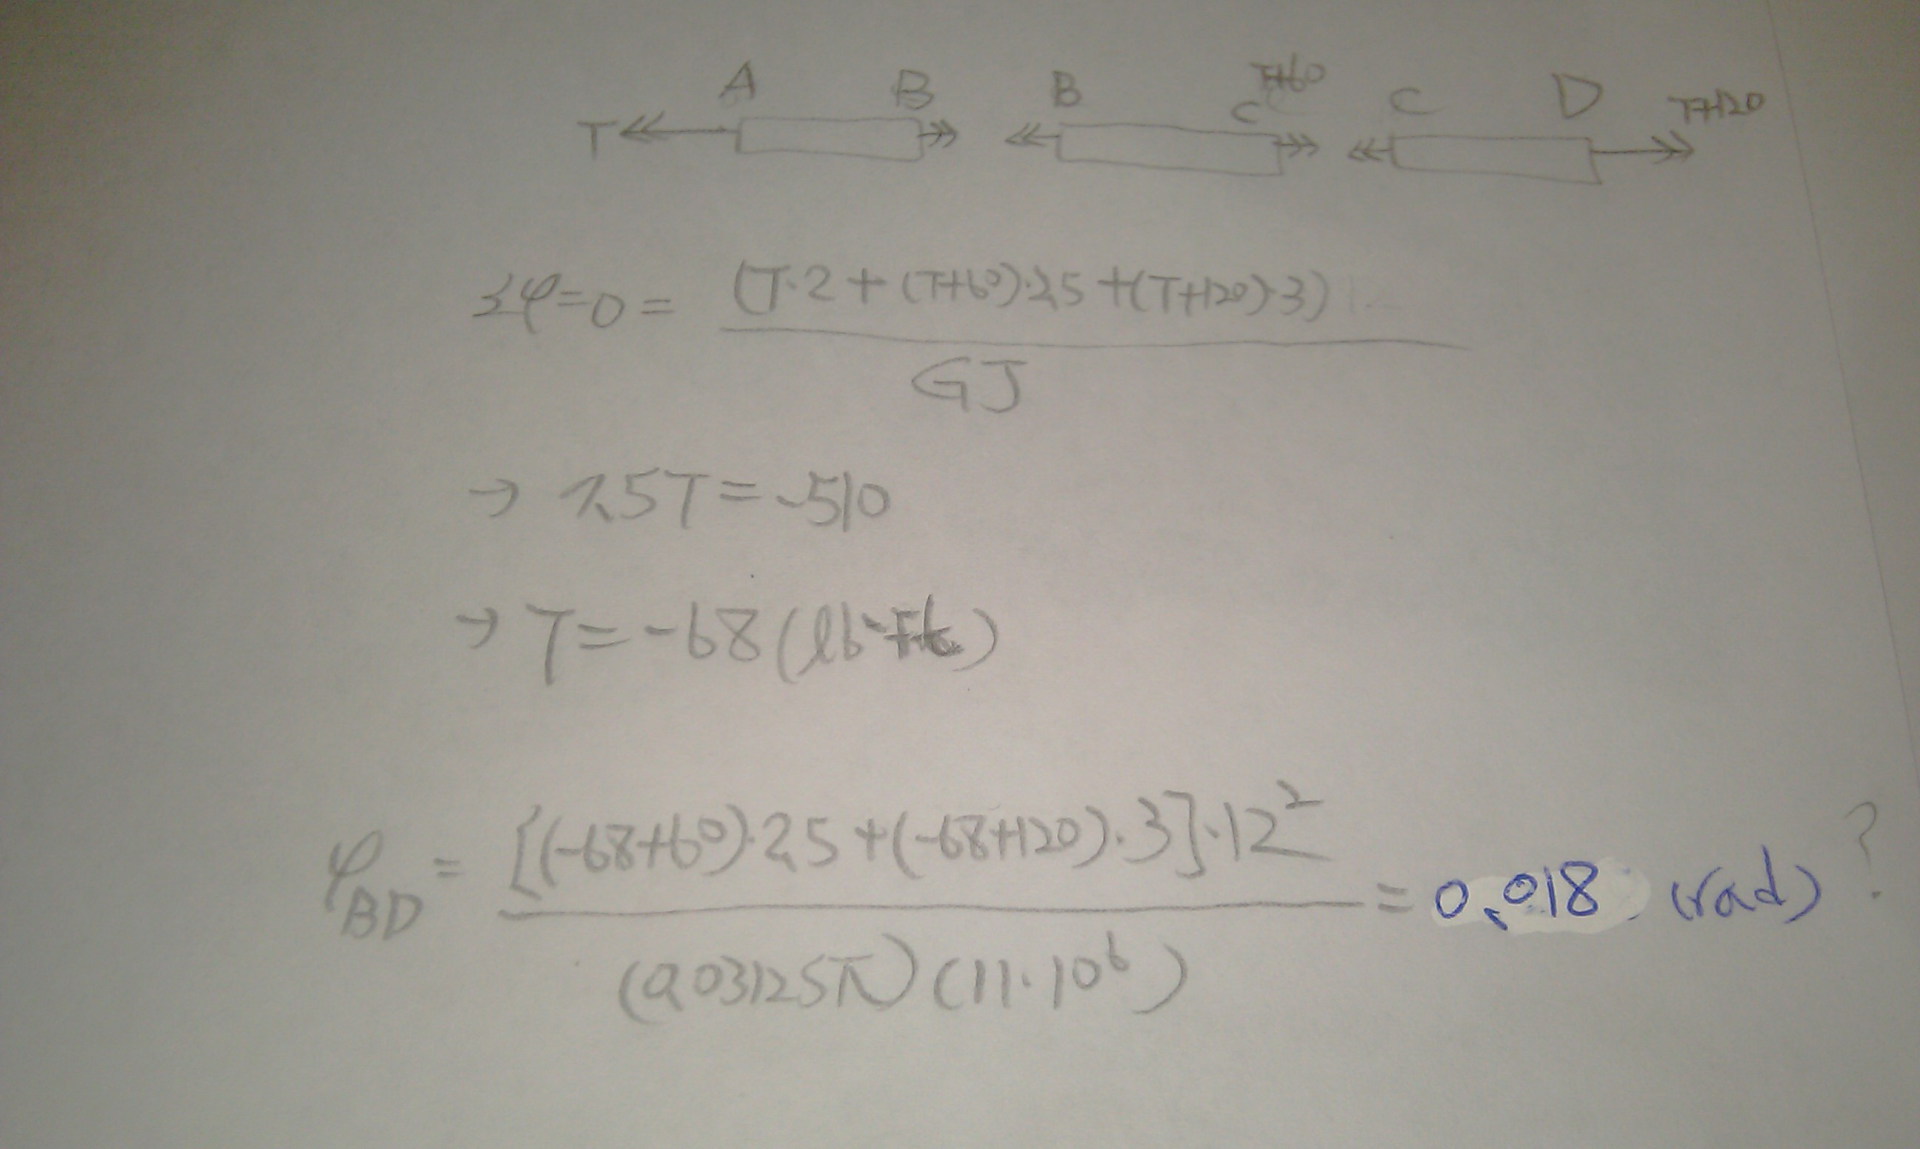 A B B T+60 C C D T+120
T
Σφ=0= (T·2+(T+60)·2.5+(T+120)·3)
GJ
→ 7.5T=-510
→ T=-68 (lb-ft)
φBD = [(-68+60)·2.5+(-68+120)·3]·12² = 0.018 (rad) ?
(0.03125π)(11·10⁶)